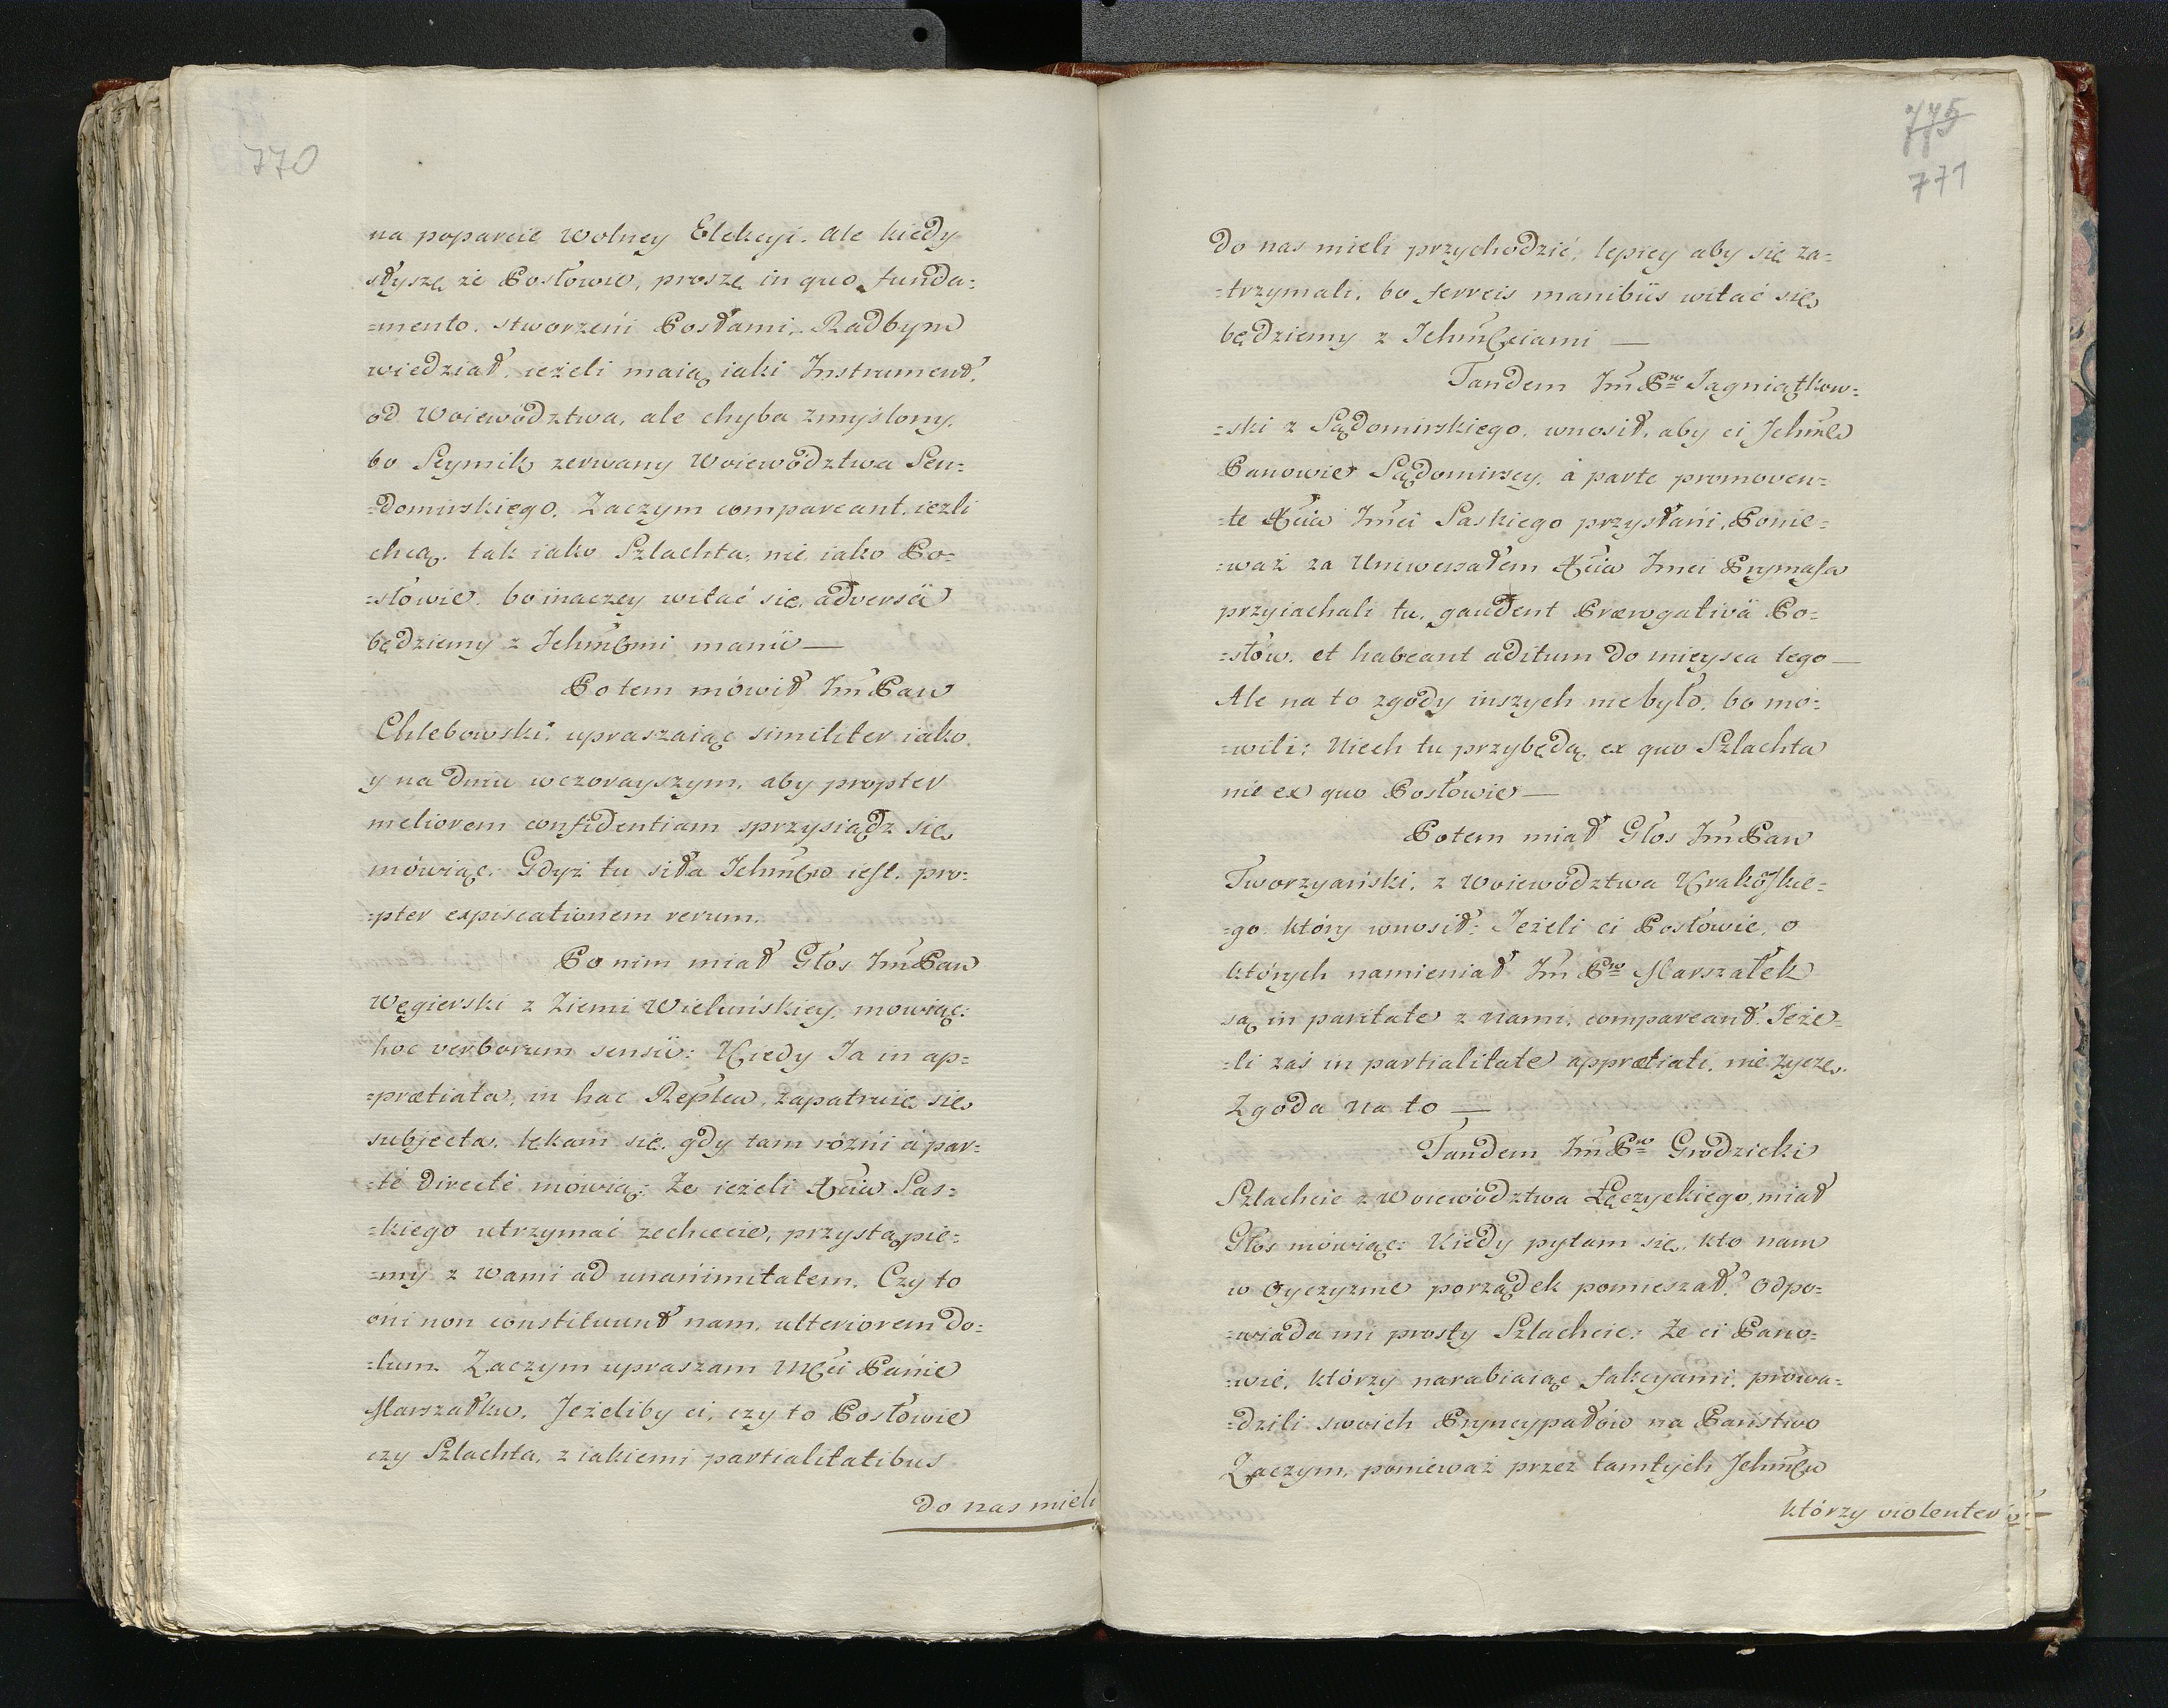 770
na poparcie Wolney Elekcyi. Ale kiedy
słyszę że Posłowie, proszę in quo funda=
=mento. stworzeni Posłami. Radbym
wiedział, ieżeli maią iaki Instrument,
od Woiewództwa, ale chyba zmyślony,
bo Seymik zerwany Woiewództwa Sen=
=domirskiego. Zaczym compareant, ieżli
chcą. tak iako Szlachta, nie iako Po=
=słowie. bo inaczey witać się adversâ
będziemy z Ichmćmi manû —
Potem mówił Im Pan
Chlebowski. upraszaiąc similiter iako
y na dniu wczorayszym, aby propter
meliorem confidentiam sprzysiądz się
mówiąc. Gdyż tu siła Ichmćw iest, pro=
=pter expiscationem rerum.
Po nim miał Głos Im Pan
Węgierski z Ziemi Wieluńskiey, mowiąc:
hoc verborum sensû: Kiedy Ja in ap=
=prætiata, in hac Repltca, zapatruię się
subjecta, lękam się. gdy tam rózni a par=
=te directe mówią: Ze ieżeli Xcia Sas=
=kiego utrzymać zechcecie, przystąpie=
=my z Wami ad unanimitatem. Czy to
oni non constituunt nam, ulteriorem do=
=lum. Zaczym upraszam Mći Panie
Marszałku, Jeżeliby ci, czy to Posłowie
czy Szlachta, z iakiemi partialitatibus
do nas mieli
775
771
do nas mieli przychodzić, lepiey aby się za=
=trzymali, bo ferreis manibûs witać się
będziemy z Ichmćciami —
Tandem Im Pn Jagniątkow=
=ski z Sądomirskiego, wnosił, aby ci Ichmć
Panowie Sądomirscy, à parte promoven=
=te Xcia Imci Saskiego przysłani, Ponie=
=waż za Uniwersałem Xcia Imci Prymasa
przyiachali tu, gaudent Prærogativâ Po=
=słów, et habeant aditum do mieysca tego —
Ale na to zgody inszych nie było, bo mó=
=wili: Niech tu przybędą, ex quo Szlachta
nie ex quo Posłowie —
Potem miał Głos Im Pan
Tworzyański, z Woiewództwa Krakoskie=
=go który wnosił: Jeżeli ci Posłowie, o
których namieniał Im Pn Marszałek
są in paritate z nami, compareant. Jeże=
=li zaś in partialitate apprætiati, nie zyczę.
Zgoda na to —
Tandem Im Pn Grodzicki
Szlachcic z Woiewództwa Łęczyckiego, miał
Głos mówiąc: Kiedy pytam się, kto nam
w Oyczyznie porządek pomieszał? Odpo=
=wiada mi prosty Szlachcic: Ze ci Pano=
=wie, którzy narabiaiąc fakcyami, prowa=
=dzili swoich Pryncypałów na Państwo
Zaczym, ponieważ przez tamtych Ichmćw
którzy violenter